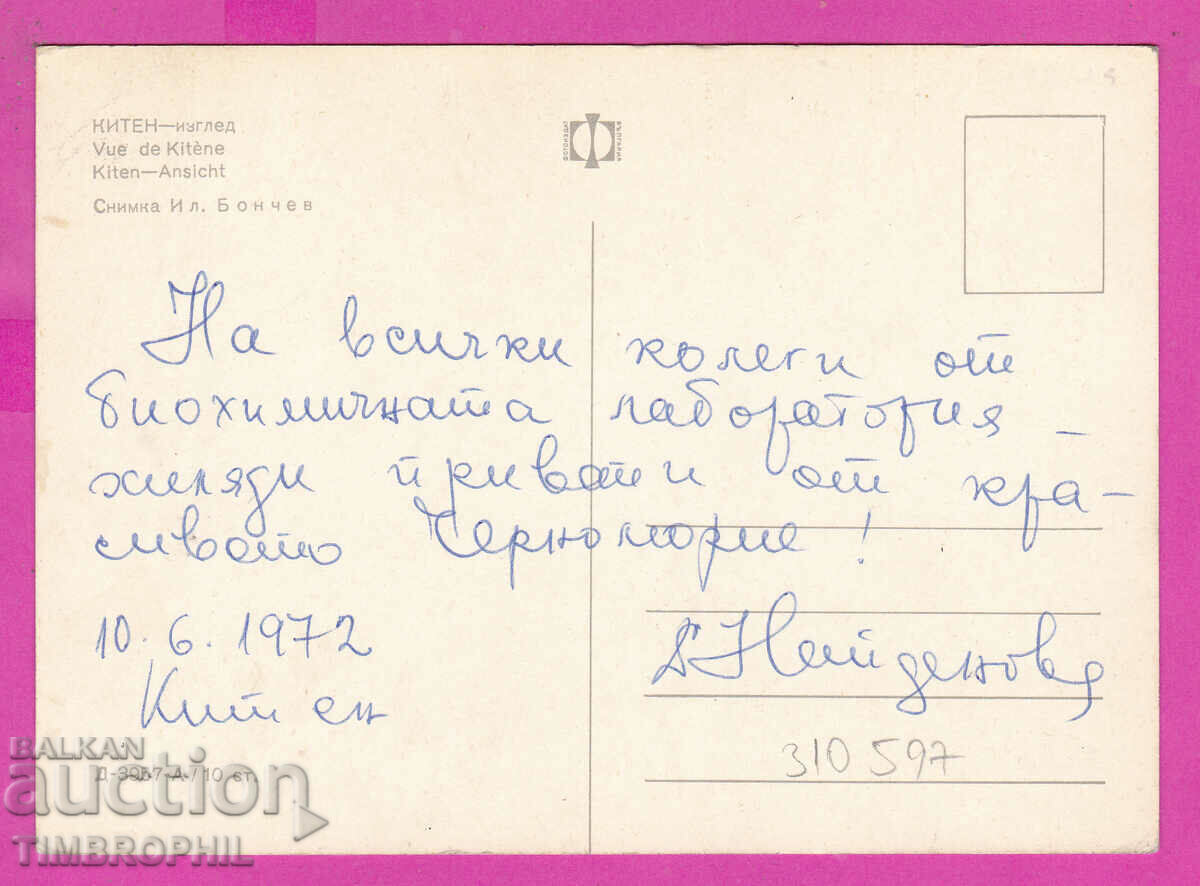 КИТЕН—изглед
Vue de Kitène
Kiten—Ansicht
Снимка Ил. Бончев
ФОТОИЗДАТ
БЪЛГАРИЯ
На всички колеги от
биохимичната лаборатория –
хиляди привети от кра-
сивото Черноморие!
10.6.1972
Китен
Найденова
310597
Д-3957-А/10 ст.
BALKAN
auction
TIMBROPHIL